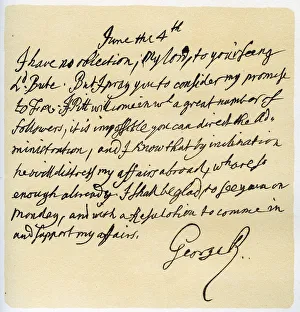 June the 4th
I have no objection, My lord, to your seeing
Ld. Bute. But I pray you to consider my promise
to Fox. If Pitt will come in wth a great number of
followers, it is impossible you can direct the Ad-
ministration, and I know that by inclination
he will distress my affairs abroad, wh are so
enough already. I shall be glad to see you on
Monday, and with a Resolution to comme in
and support my affairs.
George R.